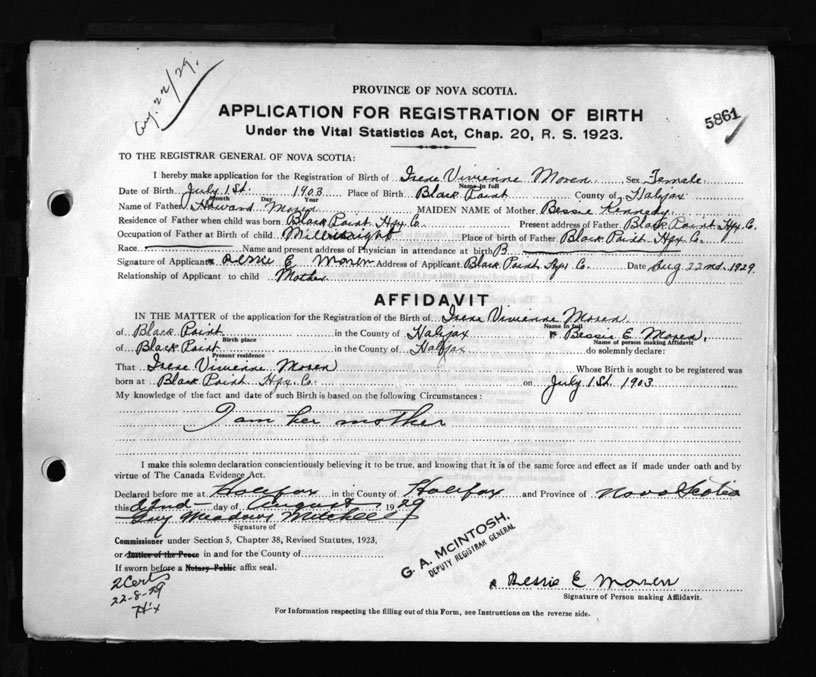 Aug. 22/29.
PROVINCE OF NOVA SCOTIA.
5861
APPLICATION FOR REGISTRATION OF BIRTH
Under the Vital Statistics Act, Chap. 20, R. S. 1923.
TO THE REGISTRAR GENERAL OF NOVA SCOTIA:
I hereby make application for the Registration of Birth of Irene Vivienne Moren Sex Female
Name in full
Date of Birth July 1st. 1903 Place of Birth Black Point County of Halifax
Month Day Year
Name of Father Howard Moren MAIDEN NAME of Mother Bessie Kennedy
Residence of Father when child was born Black Point Hfx Co. Present address of Father Black Point Hfx Co.
Occupation of Father at Birth of child Millwright Place of Birth of Father Black Point Hfx Co.
Race Name and present address of Physician in attendance at birth
Signature of Applicant Bessie E Moren Address of Applicant Black Point Hfx Co. Date Aug 22nd. 1929.
Relationship of Applicant to child Mother
AFFIDAVIT
IN THE MATTER of the application for the Registration of the Birth of Irene Vivienne Moren
Name in full
of Black Point in the County of Halifax Bessie E Moren,
Birth place Name of person making Affidavit
of Black Point in the County of Halifax do solemnly declare:
Present residence
That Irene Vivienne Moren Whose Birth is sought to be registered was
born at Black Point Hfx Co. on July 1st. 1903
My knowledge of the fact and date of such Birth is based on the following Circumstances:
I am her mother
I make this solemn declaration conscientiously believing it to be true, and knowing that it is of the same force and effect as if made under oath and by
virtue of The Canada Evidence Act.
Declared before me at Halifax in the County of Halifax and Province of Nova Scotia
this 22nd day of August 1929
Guy Meadows Mitchell
Signature of
Commissioner under Section 5, Chapter 38, Revised Statutes, 1923,
or Justice of the Peace in and for the County of
If sworn before a Notary Public affix seal.
G. A. MCINTOSH,
DEPUTY REGISTRAR GENERAL
2 Certs
22-8-29
Hfx
Bessie E Moren
Signature of Person making Affidavit.
For Information respecting the filling out of this Form, see Instructions on the reverse side.